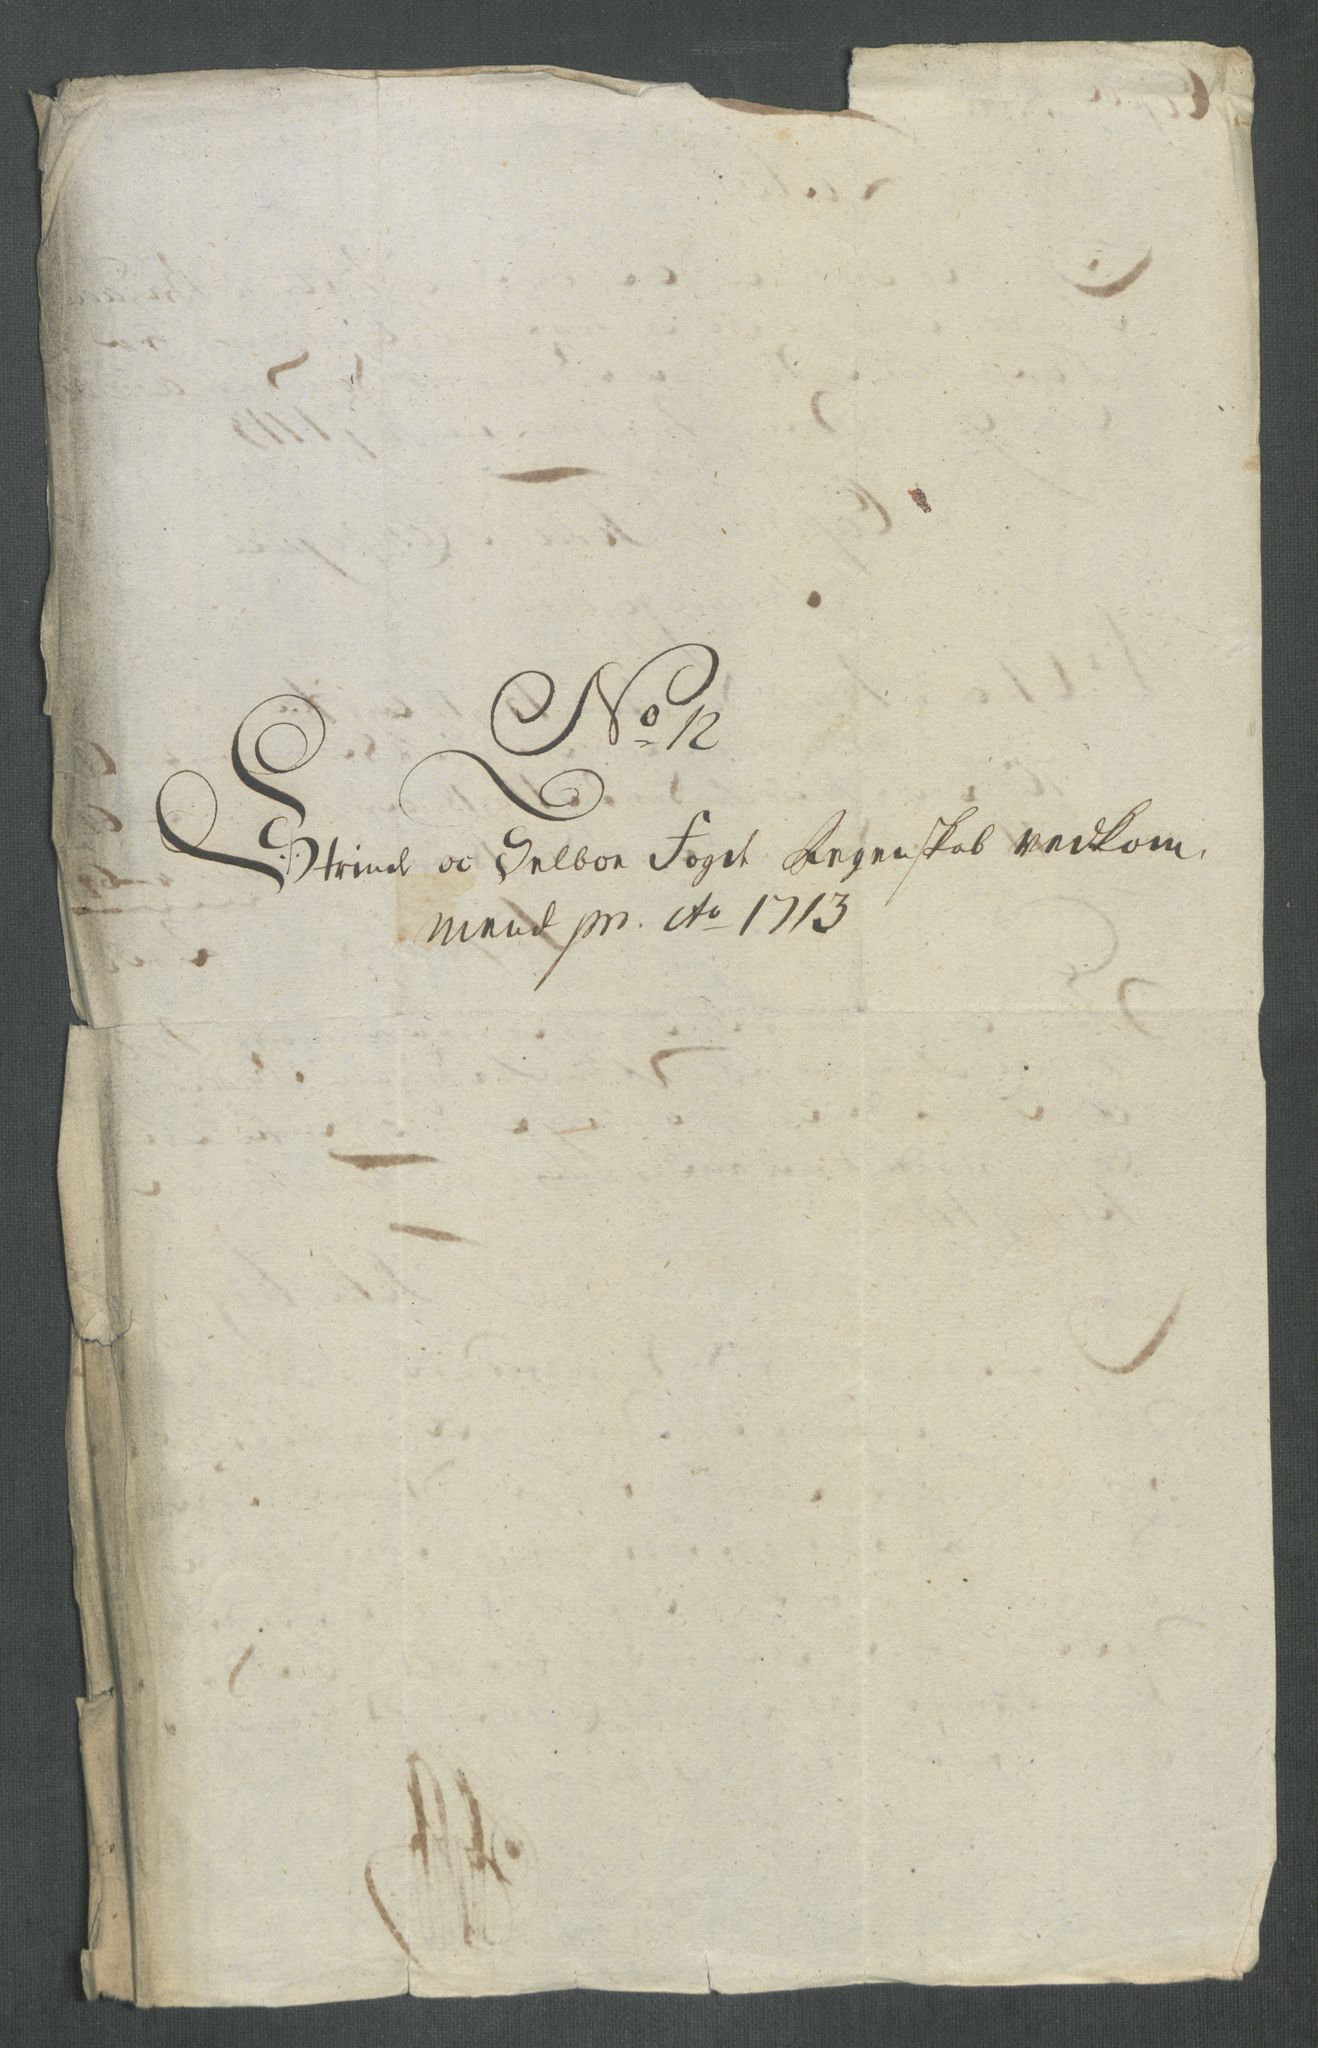 No 12
Strind oc Selboe Fogd. Regenskab vedkom,
mend pr. Ao 1713